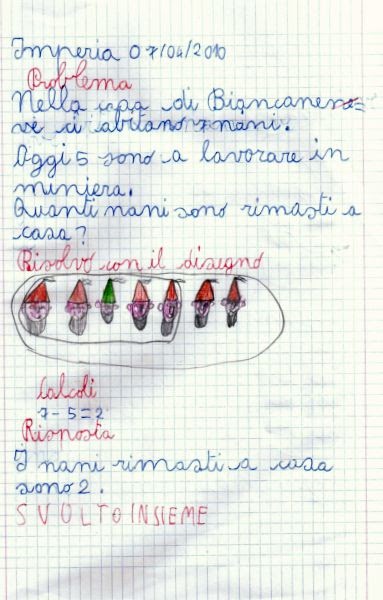 Imperia 07/04/2010
Problema
Nella casa di Biancane=
ve ci abitano 7 nani.
Oggi 5 sono a lavorare in
miniera.
Quanti nani sono rimasti a
casa?
Risolvo con il disegno
Calcoli
7-5=2
Risposta
I nani rimasti a casa
sono 2.
SVOLTO INSIEME